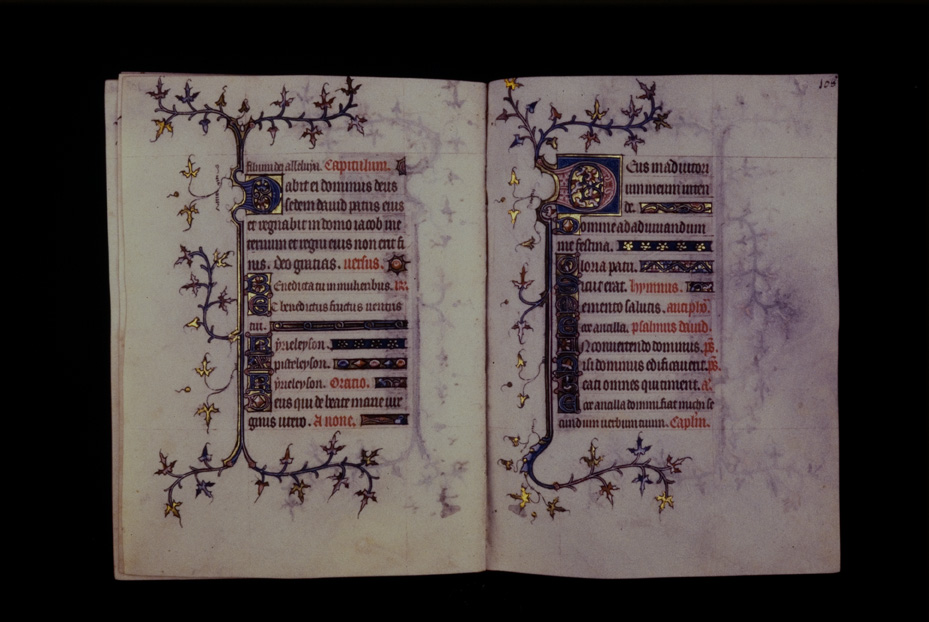 filium dei alleluya. Capitulum.
Dabit ei dominus deus
sedem dauid patris eius
et regnabit in domo iacob in e
ternum et regni eius non erit fi
nis. deo gratias. uersus.
Benedicta tu in mulieribus. R.
Et benedictus fructus uentris
tui.
Kyrieleyson.
Xpisteleyson.
Kyrieleyson. Oratio.
Deus qui de beate marie uir
ginis utero. A none.
108
Deus in adiutori
um meum inten
de.
Domine ad adiuuandum
me festina.
Gloria patri.
Sicut erat. hymnus.
Memento salutis. antiph.
Ecce ancilla. psalmus dauid.
In conuertendo dominus. ps.
Nisi dominus edificauerit. ps.
Beati omnes qui timent. a.
Ecce ancilla domini fiat michi se
cundum uerbum tuum. Caplm.